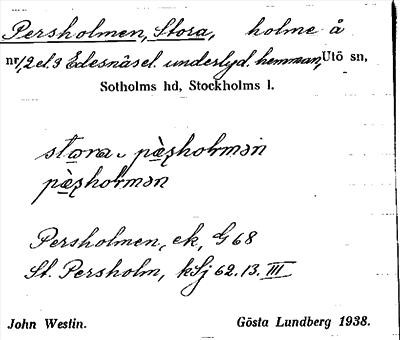 Persholmen, Stora, holme å
nr 1, 2 el. 3 Edesnäs el. underlyd. hemman, Utö sn,
Sotholms hd, Stockholms l.
pæ̀ʂholmən
Persholmen, ek, G 68
St. Persholm, kSj 62.13. III
John Westin.
Gösta Lundberg 1938.